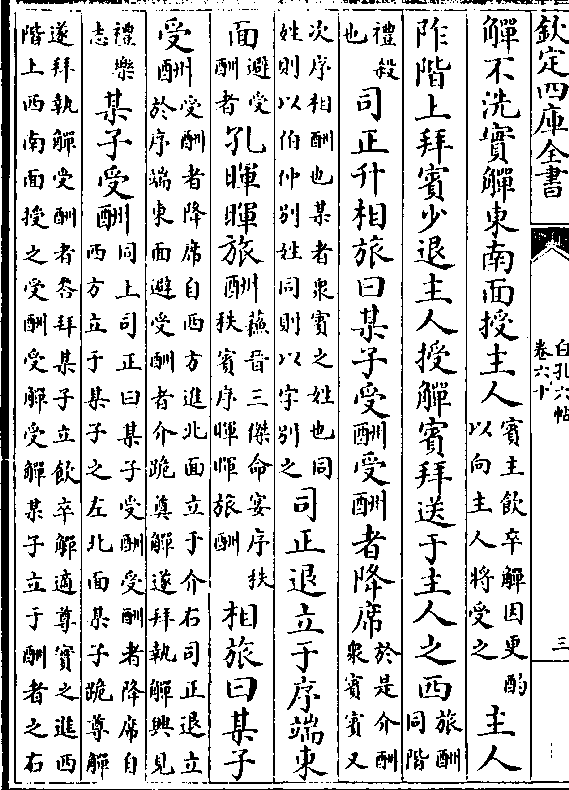 欽定四庫全書
白孔六帖
卷六十
三
觶不洗實觶東南面授主人賓主飲卒觶因更酌以向主人將受之主人
阼階上拜賓少退主人授觶賓拜送于主人之西旅酬同階
禮殺也司正升相旅曰某子受酬受酬者降席於是介酬衆賓賓又
次序相酬也某者衆賓之姓也同姓則以伯仲别姓同則以字别之司正退立于序端東
面避受酬者孔暉暉旅酬蘇晋三傑命宴序秩秩賓序暉暉旅酬相旅曰某子
受酬受酬者降席自西方進北面立于介右司正退立於序端東面避受酬者介跪奠觶遂拜執觶興見
禮樂志某子受酬同上司正曰某子受酬受酬者降席自西方立于某子之左北面某子跪尊觶
遂拜執觶受酬者答拜某子立飲卒觶適尊實之進西階上西南面授之受酬受觶受觶某子立于酬者之右